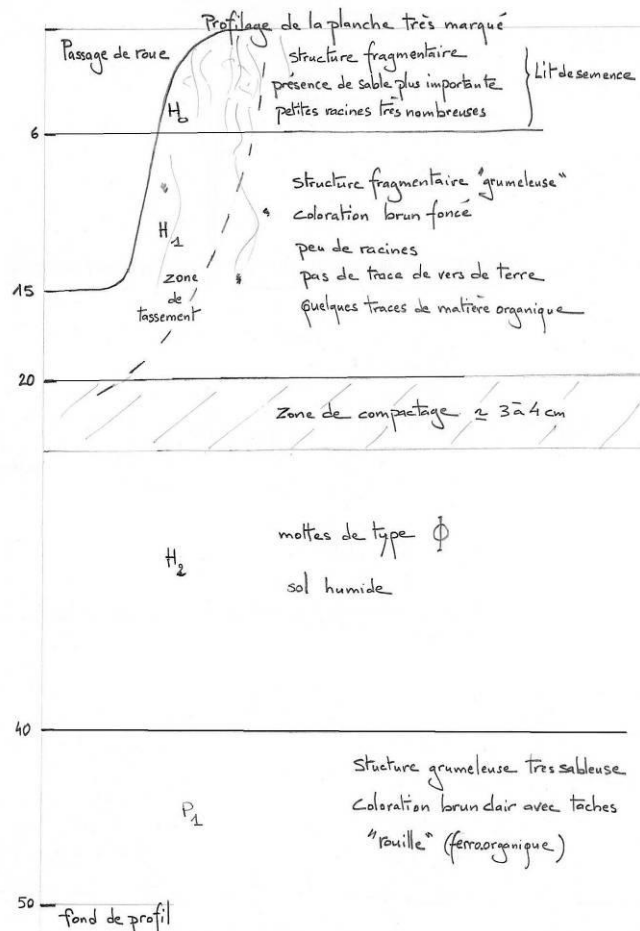 Profilage de la planche très marqué
Passage de roue
structure fragmentaire
présence de sable plus importante
petites racines très nombreuses
Lit de semence
H0
6
Structure fragmentaire "grumeleuse"
coloration brun foncé
peu de racines
pas de trace de vers de terre
quelques traces de matière organique
H1
zone
de
tassement
15
20
Zone de compactage ≃ 3 à 4 cm
mottes de type Φ
H2
sol humide
40
Stucture grumeleuse tres sableuse
Coloration brun clair avec taches
"rouille" (ferro.organique)
P1
50
fond de profil